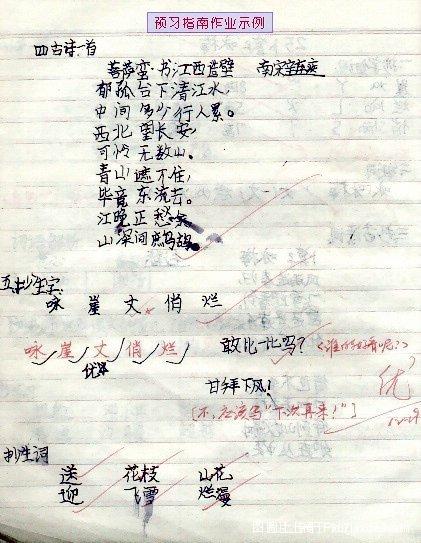 预习指南作业示例
四、古诗一首
菩萨蛮·书江西造壁 南宋辛弃疾
郁孤台下清江水,
中间多少行人累。
西北望长安,
可怜无数山。
青山遮不住,
毕竟东流去。
江晚正愁余
山深闻鹧鸪
五、抄生字:
咏 崖 丈 俏 烂
咏 崖 丈 俏 烂 敢比一比吗? <谁的好看呢?>
优
甘拜下风! 优
[不,应该写"下次再来!"]
抄生词
送 花枝 山花
迎 飞雪 烂漫